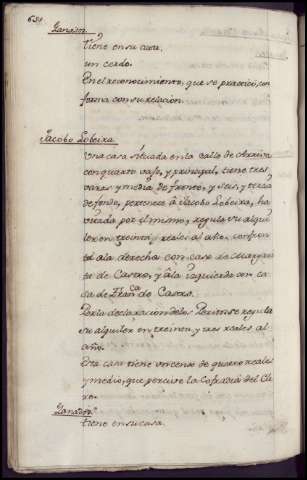 681.
Ganados.
tiene en su casa.
un cerdo.
En el reconocimiento, que se practicó, con
forma con su relacion.
Jacobo Lobeira.
Una casa situada en la calle de Arriva
con quarto vajo, y principal, tiene tres
varas y media de frente, y seis, y tercia
de fondo, pertenece á Jacobo Lobeira, ha
vitada por el mismo, regula su alqui
ler en treinta reales al año, confron
ta á la derecha con casa de Margari
ta de Castro, y á la izquierda con ca
sa de Fran.ca de Castro.
Por la declaracion de los Peritos se regula
su alquiler en treinta, y tres reales al
año.
Esta casa tiene un censo de quatro reales
y medio, que percive la Cofradia del Cle
ro.
Ganados.
tiene en su casa.